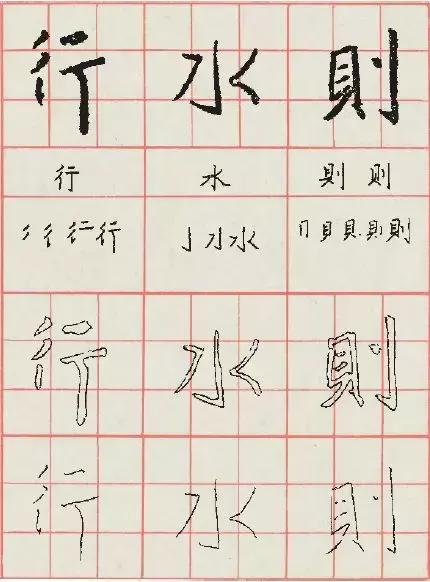 行 水 則
行 水 則 則
彳 行 亅 水 冂 貝 則
行 水 則
行 水 則